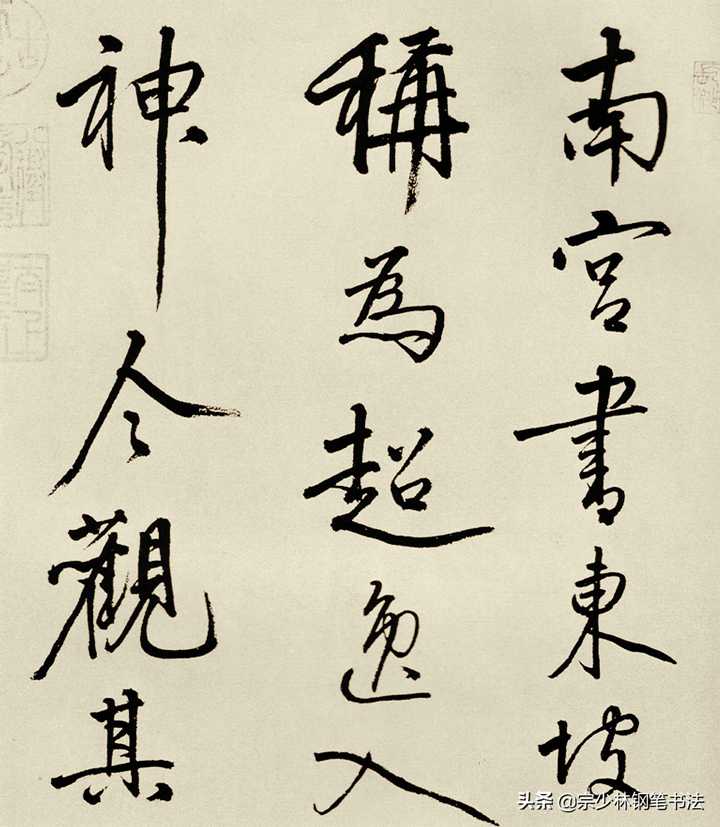 南宫書東坡
稱為超逸入
神今觀其
头条 @宗少林钢笔书法